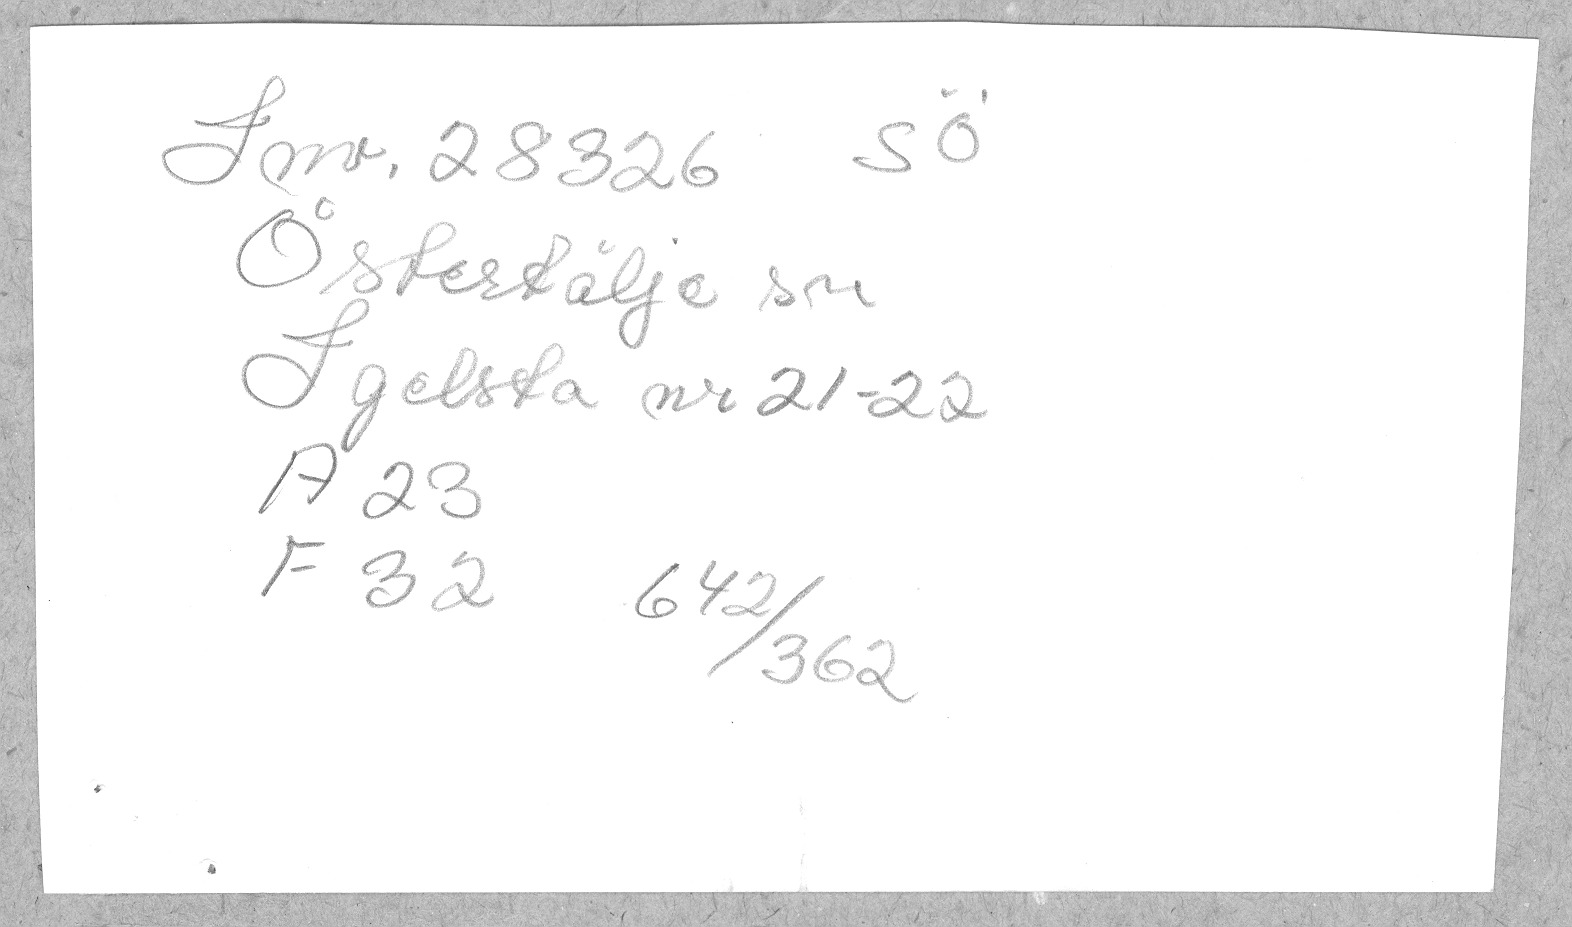 Inv. 28326 SÖ
Östertälje sn
Igelsta nr 21-22
A 23
F 32 642/362